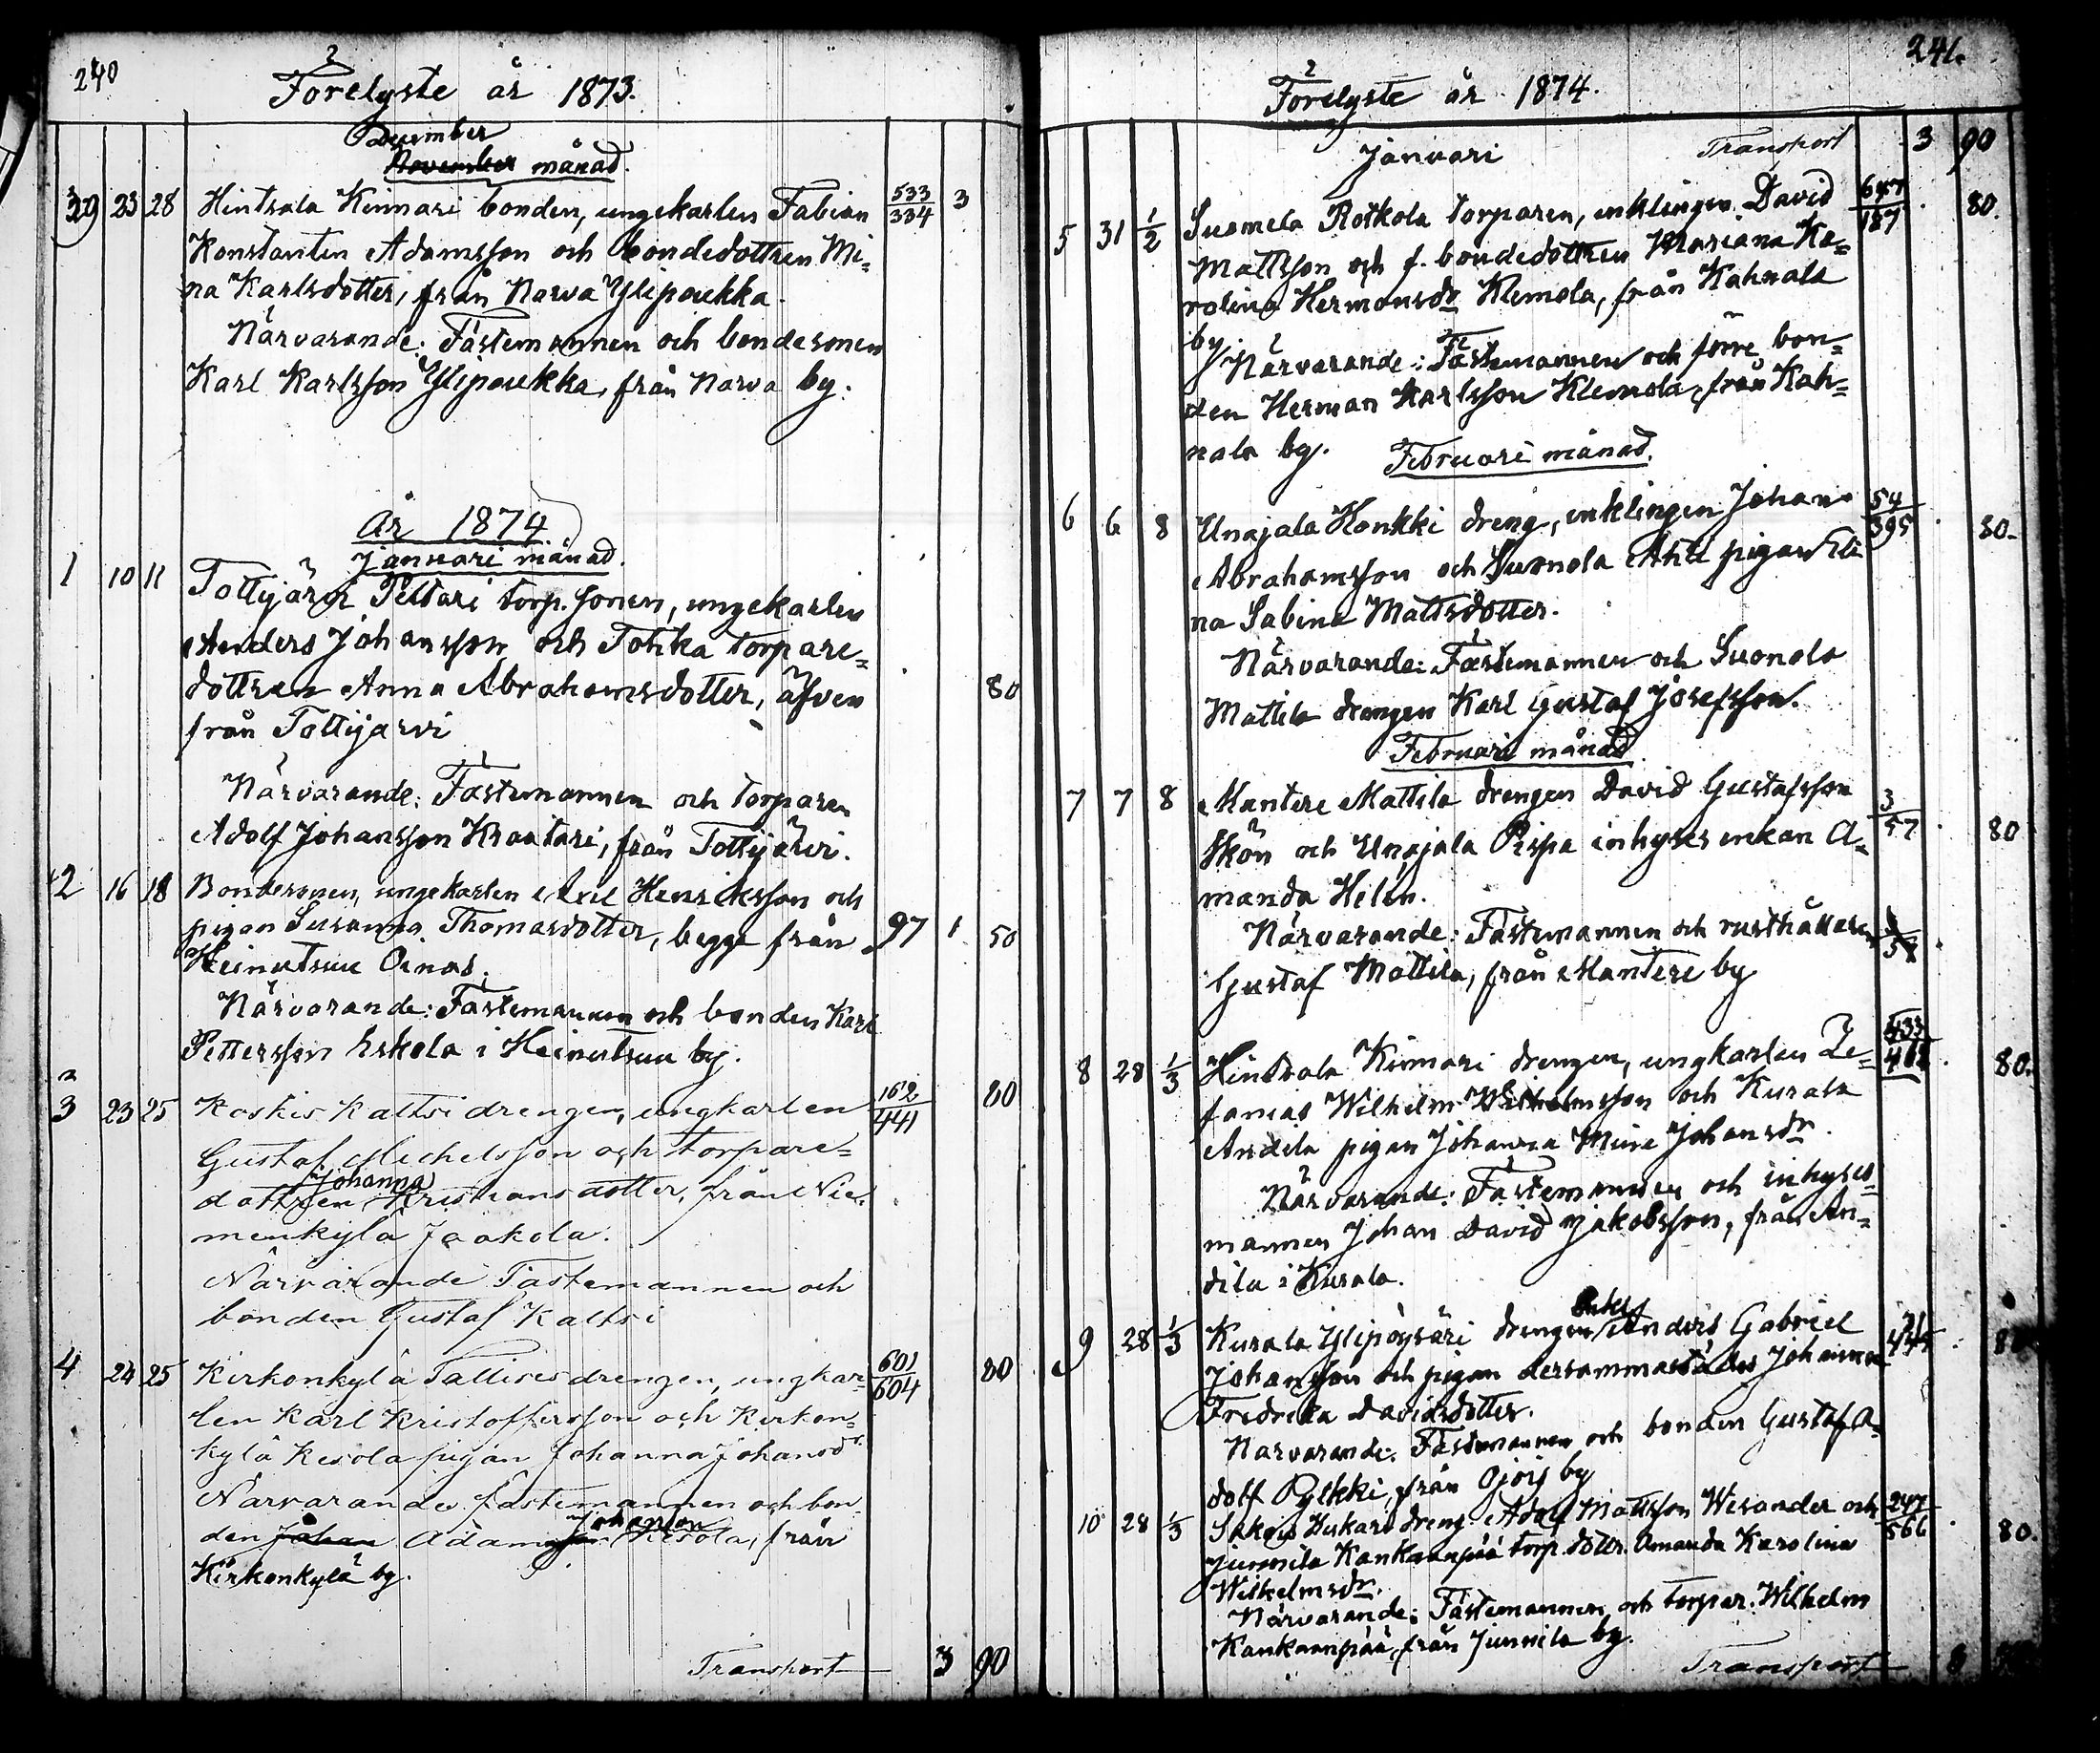 240
Förelyste år 1873.
December
November månad.
39 23 28 Hintsala Kinnari bonden, ungekarlen Fabian 533/334 3
Konstantin Adamsson och bondedottren Mi=
na Karlsdotter, från Narva Ylipoukka.
Närvarande: Fästemannen och bondesonen
Karl Karlsson Ylipoukka, från Narva by.
År 1874
Januari månad.
1 10 11 Tottijärvi Pettari torp. sonen, ungekarlen
Anders Johansson och Tohka torpare=
dottren Anna Abrahamsdotter, äfven 80
från Tottijärvi
Närvarande: Fästemannen och torparen
Adolf Johansson Kraatari, från Tottijärvi.
2 16 18 Bondesonen, ungekarlen Axel Henriksson och
pigan Susanna Thomasdotter, begge från 97 1 50
Heinutsuu Oinas.
Närvarande: Fästemannen och bonden Karl
Pettersson Eskola i Heinutsuu by.
3 23 25 Koskis Kaltsi drengen, ungkarlen 162/441 80
Gustaf Michelsson och torpare=
Johanna
dottren Kristiansdotter, från Nie=
menkylä Jaakola.
Närvarande Fästemannen och
bonden Gustaf Kaltsi
4 24 25 Kirkonkylä Tallises drengen, ungkar= 601/604 80
len Karl Kristoffersson och Kirkon=
kylä Kesola pigan Johanna Johansdr
Närvarande fästemannen och bon=
Johansson
den Johan Adamsson Kesola, från
Kirkonkylä by.
Transport 3 90
241.
Förelyste år 1874.
Januari Transport 3 90
5 31 1/2 Suomela Rotkola torparen, enklingen David 647/187 80.
Mattsson och f. bondedottren Mariana Ka=
rolina Hermansdr Klemola, från Kahnala
by.
Närvarande: Fästemannen och förre bon=
den Herman Karlsson Klemola, från Kah=
nala by.
Februari månad.
6 6 8 Unajala Honkki dreng, enklingen Johan 54/395 80.
Abrahamsson och Suonola Antti pigan Eli
na Sabina Mattsdotter.
Närvarande: Fästemannen och Suonola
Mattila drengen Karl Gustaf Josefsson.
Februari månad
7 7 8 Mantere Mattila drengen David Gustafsson 3/57 80
Skön och Unajala Pispa inhyses enkan A=
manda Helen.
Närvarande: Fästemannen och rusthållaren
Gustaf Mattila, från Mantere by
8 28 1/3 Hintsala Kinnari drengen, ungkarlen Ze= 433/468 80.
fanias Wilhelm Wilhelmsson och Kurala
Andela pigan Johanna Mina Johansdr.
Närvarande: Fästemannen och inhyses=
mannen Johan David Jakobsson, från An=
dila i Kurala.
enkl.
9 28 1/3 Kurala Ylipöysäri drengen Anders Gabriel 80
Johansson och pigan dersammastädes Johanna
Fredrika Davidsdotter.
Närvarande: Fästemannen och bonden Gustaf A=
dolf Pylkki, från Ojois by
10 28 1/3 Sakois Huskari dreng Adolf Mattsson Wesander och 247/566 80.
Junnila Kankaanpää torp. dottr. Amanda Karolina
Wilhelmsdr.
Närvarande: Fästemannen och torpar. Wilhelm
Kankaanpää, från Junnila by.
Transport 8